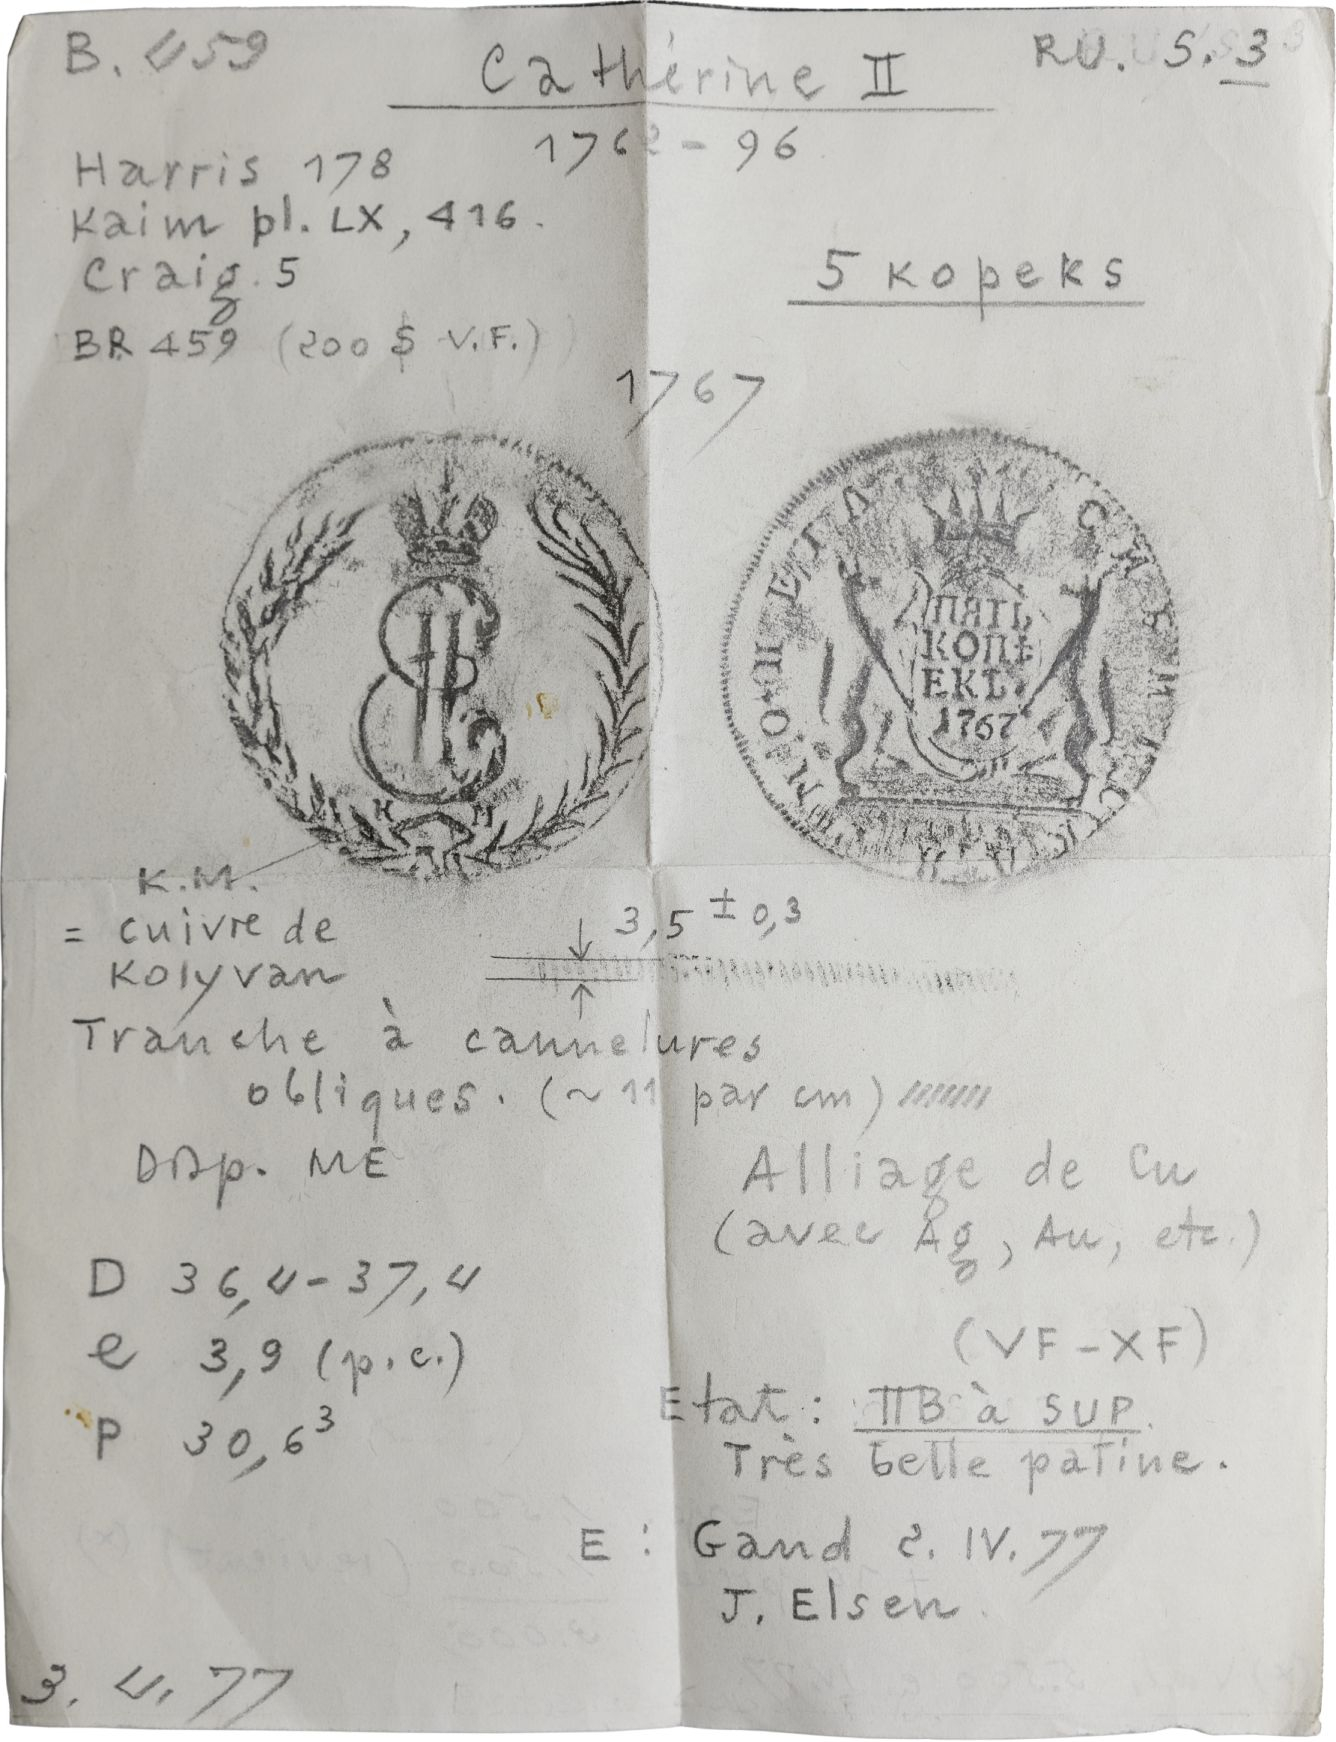 B. 459
Catherine II
RU. S. 3
1762 - 96
Harris 178
Kaim pl. LX, 416.
Craig. 5
BR 459 (200 $ V.F.)
5 kopeks
1767
МОНЕТА СИБИРСКАЯ
ПЯТЬ
КОПѢ
ЕКЪ
1767
К М
K.M.
= cuivre de
Kolyvan
3,5 ± 0,3
Tranche à cannelures
obliques. (~ 11 par cm)
ME
Alliage de Cu
(avec Ag, Au, etc.)
D 36,4 - 37,4
e 3,9 (p.c.)
P 30,6³
(VF - XF)
Etat : TTB à SUP.
Très belle patine.
E : Gand 2. IV. 77
J. Elsen
3. 4. 77